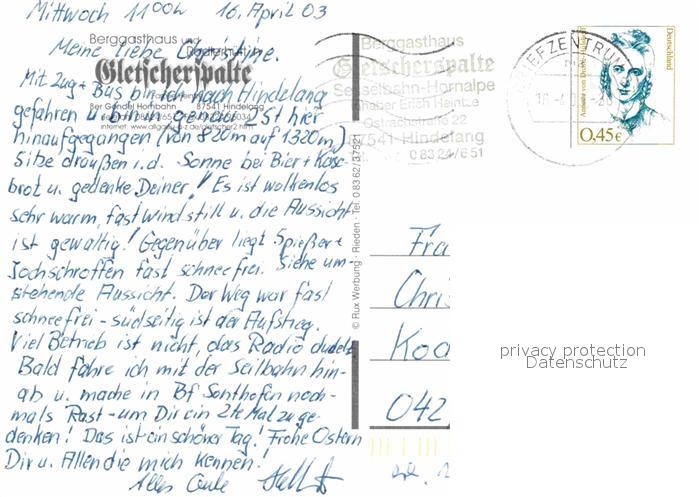 Mittwoch 11 00h 16. April 03
Meine liebe Christine.
Berggasthaus und
Gletscherspalte
8er Gondel Hornbahn 87541 Hindelang
Mit Zug + Bus bin ich nach Hindelang
gefahren u. bin genau 
hinaufgegangen (von 820m auf 1320m)
sitze draußen i.d. Sonne bei Bier + Käse-
brot u. gedenke Deiner! Es ist wolkenlos
sehr warm, fast windstill u. die Aussicht
ist gewaltig! Gegenüber liegt Spießer +
Jochschroffen fast schneefrei. Siehe um-
stehende Aussicht. Der Weg war fast
schneefrei - südseitig ist der Aufstieg.
Viel Betrieb ist nicht, das Radio dudelt.
Bald fahre ich mit der Seilbahn hin-
ab u. mache in Bf Sonthofen noch-
mals Rast - um Dir ein 2te Mal zu ge-
denken! Das ist ein schöner Tag! Frohe Ostern
Dir u. Allen die mich kennen!
Alles Gute
© Rux Werbung · Rieden · Tel. 0 83 62/37521
Berggasthaus
Gletscherspalte
Sesselbahn-Hornalpe
Inhaber Erich
Ostrachstraße 22
87541 Hindelang
0 83 24/6 51
BRIEFZENTRUM
Deutschland
Annette von Droste-Hülshoff
0,45€
Fra
Chri
Koc
042
privacy protection
Datenschutz